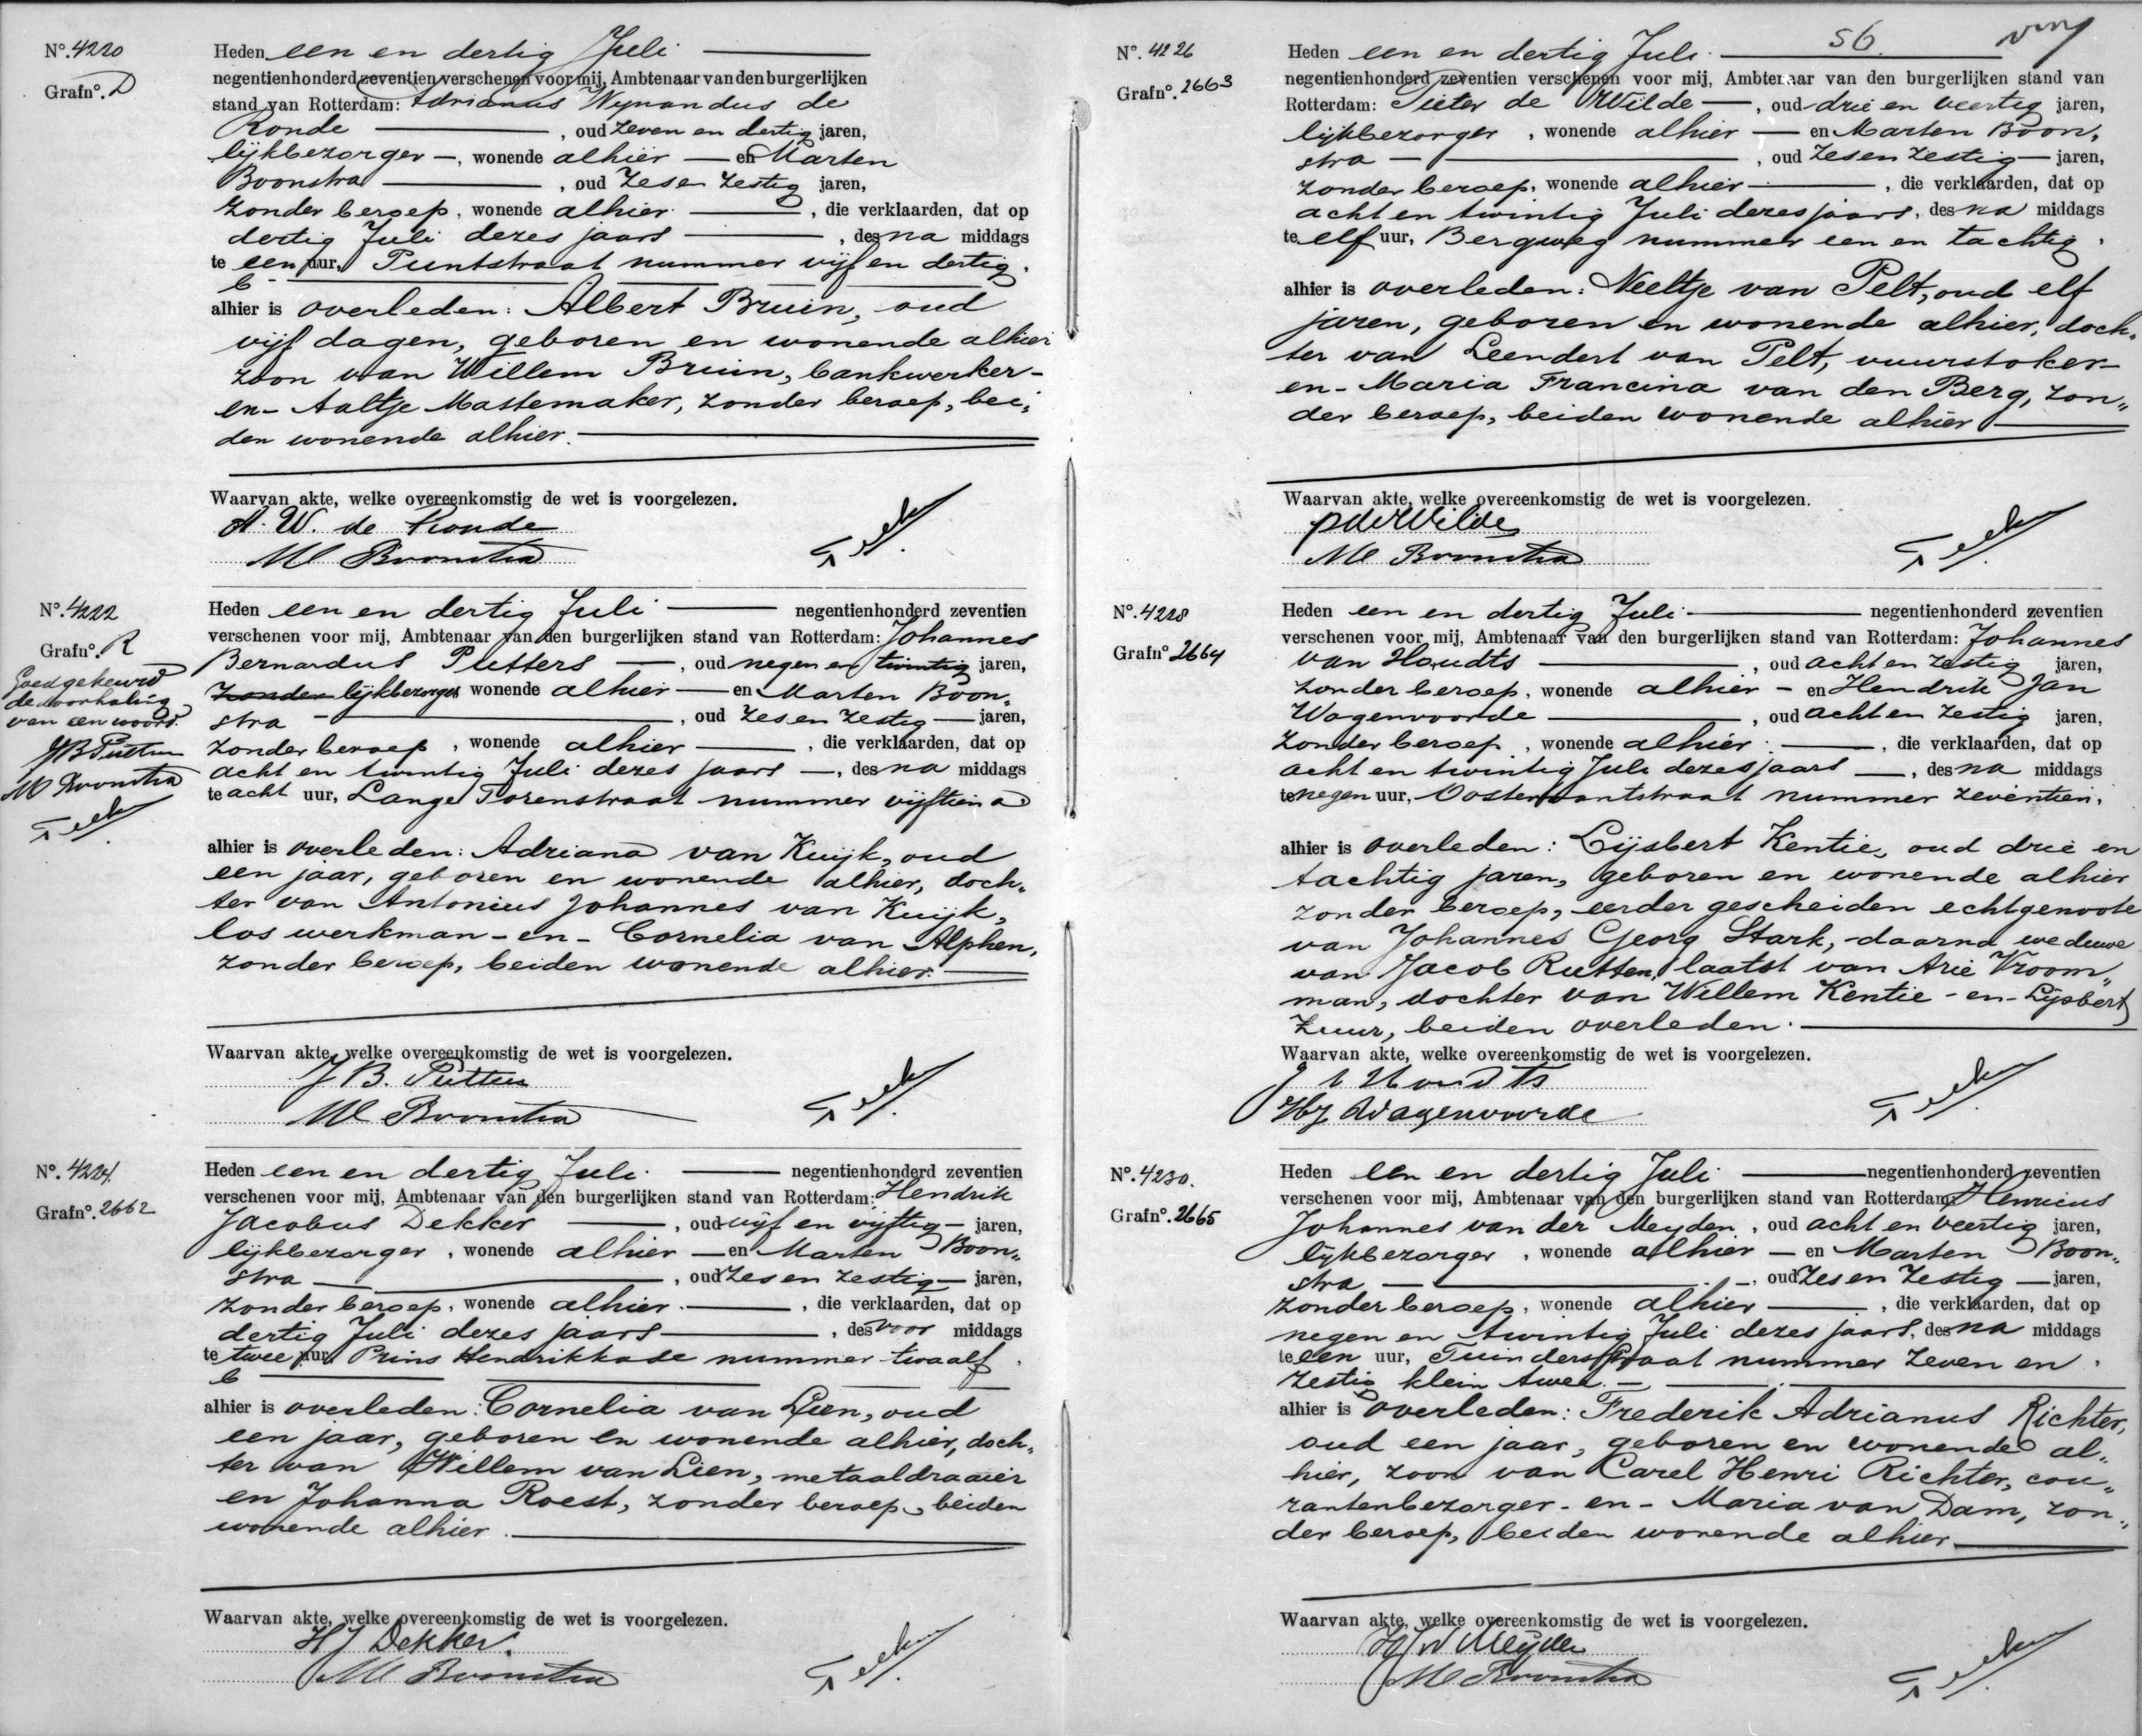 No. 4220
Grafno. D
Heden een en dertig Juli
negentienhonderd zeventien verschenen voor mij, Ambtenaar van den burgerlijken
stand van Rotterdam: Adrianus Wynandus de
Ronde, oud zeven en dertig jaren,
lijkbezorger, wonende alhier en Marten
Boonstra, oud zes en zestig jaren,
zonder beroep, wonende alhier, die verklaarden, dat op
dertig Juli dezes jaars, des na middags
te een uur, Puntstraat nummer vijf en dertig
b
alhier is overleden: Albert Bruin, oud
vijf dagen, geboren en wonende alhier
zoon van Willem Bruin, bankwerker -
en - Aaltje Mastemaker, zonder beroep, bei„
den wonende alhier.
Waarvan akte, welke overeenkomstig de wet is voorgelezen.
A. W. de Ronde
M Boonstra
No. 4222
Grafno. R
Goedgekeurd
de doorhaling
van een woord.
JB Putters
M Boonstra
Heden een en dertig Juli negentienhonderd zeventien
verschenen voor mij, Ambtenaar van den burgerlijken stand van Rotterdam: Johannes
Bernardus Putters, oud negen en twintig jaren,
zonder lijkbezorger, wonende alhier en Marten Boon„
stra, oud zes en zestig jaren,
zonder beroep, wonende alhier, die verklaarden, dat op
acht en twintig Juli dezes jaars, des na middags
te acht uur, Lange Torenstraat nummer vijftien a
alhier is overleden: Adriana van Kuijk, oud
een jaar, geboren en wonende alhier, doch„
ter van Antonius Johannes van Kuijk,
los werkman - en - Cornelia van Alphen,
zonder beroep, beiden wonende alhier.
Waarvan akte, welke overeenkomstig de wet is voorgelezen.
J B. Putters
M Boonstra
No. 4224
Grafno. 2662
Heden een en dertig Juli negentienhonderd zeventien
verschenen voor mij, Ambtenaar van den burgerlijken stand van Rotterdam: Hendrik
Jacobus Dekker, oud vijf en vijftig jaren,
lijkbezorger, wonende alhier en Marten Boon„
stra, oud zes en zestig jaren,
zonder beroep, wonende alhier, die verklaarden, dat op
dertig Juli dezes jaars, des voor middags
te twee uur, Prins Hendrikkade nummer twaalf
b
alhier is overleden: Cornelia van Lien, oud
een jaar, geboren en wonende alhier, doch„
ter van Willem van Lien, metaaldraaier
en Johanna Roest, zonder beroep, beiden
wonende alhier.
Waarvan akte, welke overeenkomstig de wet is voorgelezen.
HJ Dekker.
M Boonstra
56
No. 4226
Grafno. 2663
Heden een en dertig Juli
negentienhonderd zeventien verschenen voor mij, Ambtenaar van den burgerlijken stand van
Rotterdam: Pieter de Wilde, oud drie en veertig jaren,
lijkbezorger, wonende alhier en Marten Boon„
stra, oud zes en zestig jaren,
zonder beroep, wonende alhier, die verklaarden, dat op
acht en twintig Juli dezes jaars, des na middags
te elf uur, Bergweg nummer een en tachtig
alhier is overleden: Neeltje van Pelt, oud elf
jaren, geboren en wonende alhier, doch„
ter van Leendert van Pelt, vuurstoker
en - Maria Francina van den Berg, zon„
der beroep, beiden wonende alhier
Waarvan akte, welke overeenkomstig de wet is voorgelezen.
P de Wilde
M Boonstra
No. 4228
Grafno 2664
Heden een en dertig Juli negentienhonderd zeventien
verschenen voor mij, Ambtenaar van den burgerlijken stand van Rotterdam: Johannes
van Houdts, oud acht en zestig jaren,
zonder beroep, wonende alhier - en Hendrik Jan
Wagenvoorde, oud acht en zestig jaren,
zonder beroep, wonende alhier, die verklaarden, dat op
acht en twintig Juli dezes jaars, des na middags
te negen uur, Oostervantstraat nummer zeventien,
alhier is overleden: Lijsbert Kentie, oud drie en
tachtig jaren, geboren en wonende alhier
zonder beroep, eerder gescheiden echtgenoote
van Johannes Georg Stark, daarna weduwe
van Jacob Rutten, laatst van Arie Vroom„
man, dochter van Willem Kentie - en - Lijsbert
Zuur, beiden overleden.
Waarvan akte, welke overeenkomstig de wet is voorgelezen.
J v Houdts
HJ Wagenvoorde
No. 4230.
Grafno. 2665
Heden een en dertig Juli negentienhonderd zeventien
verschenen voor mij, Ambtenaar van den burgerlijken stand van Rotterdam: Henricus
Johannes van der Meyden, oud acht en veertig jaren,
lijkbezorger, wonende alhier en Marten Boon„
stra, oud zes en zestig jaren,
zonder beroep, wonende alhier, die verklaarden, dat op
negen en twintig Juli dezes jaars, des na middags
te een uur, Tuindersstraat nummer zeven en
zestig klein twee.
alhier is overleden: Frederik Adrianus Richter,
oud een jaar, geboren en wonende al„
hier, zoon van Carel Henri Richter, cou„
rantenbezorger - en - Maria van Dam, zon„
der beroep, beiden wonende alhier
Waarvan akte, welke overeenkomstig de wet is voorgelezen.
HJ v d Meyden
M Boonstra